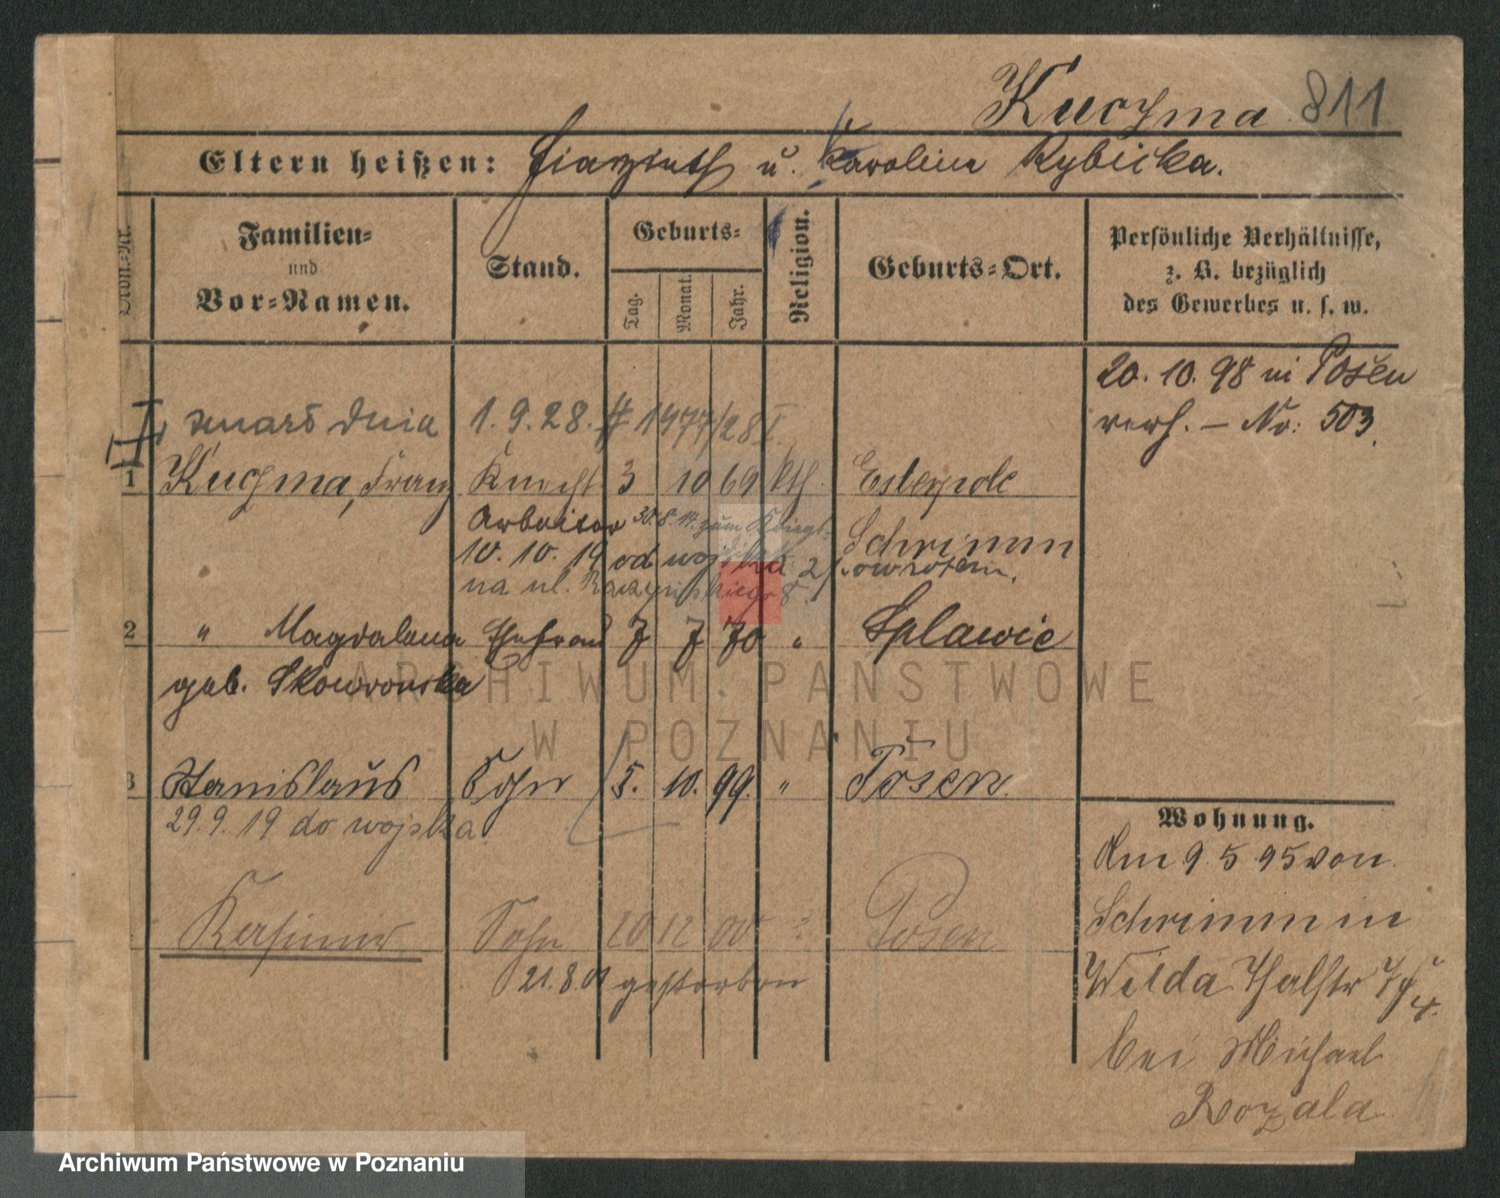 Kuczma 811
Eltern heißen: Hiazinth u. Karolina Rybicka.
Familien-
und
Vor-Namen.
Stand.
Geburts-
Tag.
Monat.
Jahr.
Religion.
Geburts-Ort.
Persönliche Verhältnisse,
z. B. bezüglich
des Gewerbes u. s. w.
20. 10. 98 in Posen
verh. – No: 503.
zmarł dnia 1. 9. 28. # 1977/28 I.
1 Kuczma, Franz Knecht 3 10 69 kth
Arbeiter 30.8.14. zum Kriegs-
Schrimm
10. 10. 19 od wojska
na ul. Raczyńskiego 8.
2 " Magdalena Ehefrau 7 7 70 " Splawie
geb. Skowronska
3 Stanislaus Sohn 5. 10. 99. " Posen
29. 9. 19 do wojska.
Kasimir Sohn 20 12 00 Posen
21. 8. 01 gestorben
Wohnung.
Am 9. 5 95 von
Schrimm in
Wilda Thalstr
bei Michael
Rozala
ARCHIWUM PAŃSTWOWE
W POZNANIU
Archiwum Państwowe w Poznaniu